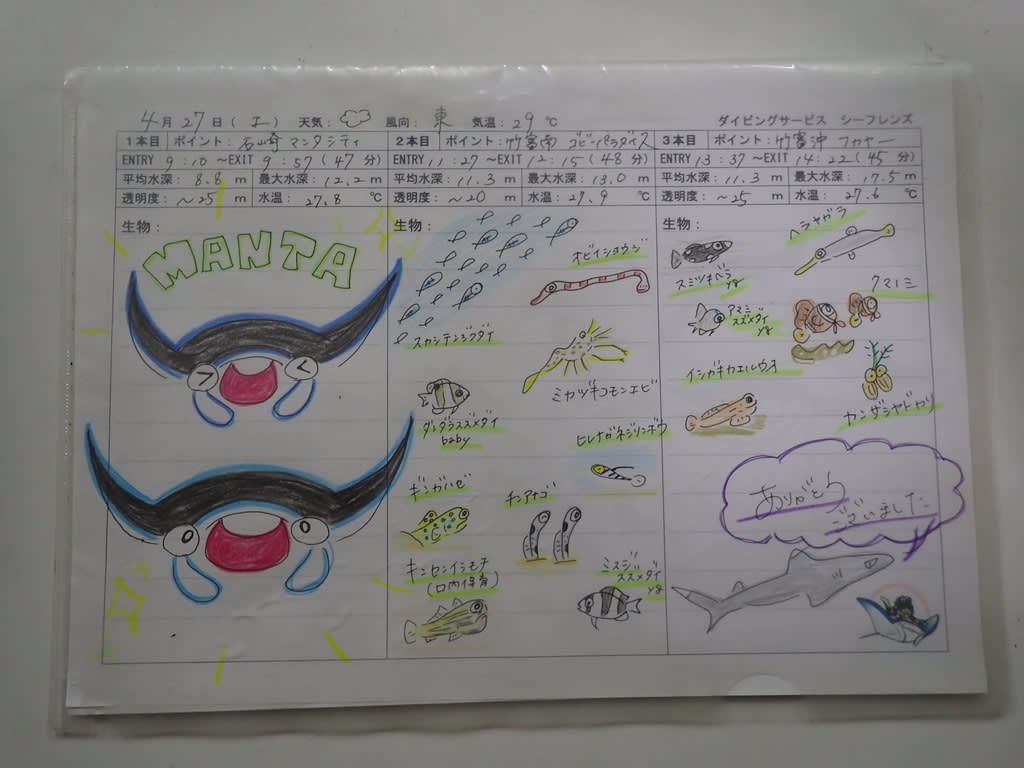 4月27日(土) 天気: 風向: 東 気温: 29 ℃ ダイビングサービス シーフレンズ
1本目 ポイント: 石崎 マンタシティ
ENTRY 9:10 ～EXIT 9:57 (47分)
平均水深: 8.8 m 最大水深: 12.2 m
透明度: ～25 m 水温: 27.8 ℃
生物:
MANTA
2本目 ポイント: 竹富南 ゴビーパラダイス
ENTRY 11:27 ～EXIT 12:15 (48分)
平均水深: 11.3 m 最大水深: 13.0 m
透明度: ～20 m 水温: 27.9 ℃
生物:
オビイシヨウジ
スカシテンジクダイ
ミカヅキコモンエビ
ダンダラスズメダイ
baby
ヒレナガネジリンボウ
ギンガハゼ
チンアナゴ
キンセンイシモチ
(口内保育)
ミスジ
スズメダイ
yg
3本目 ポイント: 竹富沖 フカヤー
ENTRY 13:37 ～EXIT 14:22 (45分)
平均水深: 11.3 m 最大水深: 17.5 m
透明度: ～25 m 水温: 27.6 ℃
生物:
ヘラヤガラ
スミツキベラ
yg
クマノミ
アマミ
スズメダイ
yg
イシガキカエルウオ
カンザシヤドカリ
ありがとう
ございました